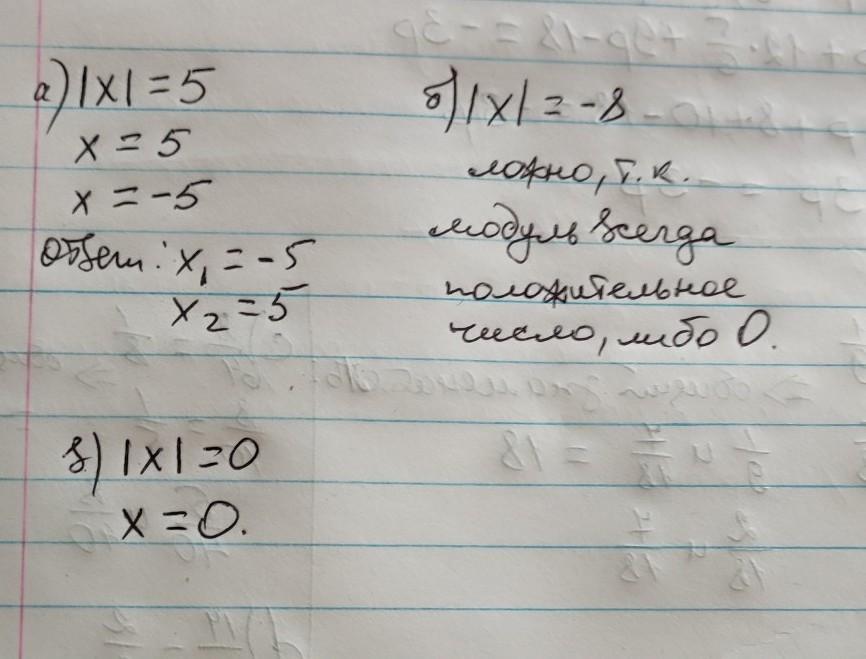 а) |x| = 5
x = 5
x = -5
Ответ: x₁ = -5
x₂ = 5
б) |x| = -8
ложно, т.к.
модуль всегда
положительное
число, либо 0.
в) |x| = 0
x = 0.